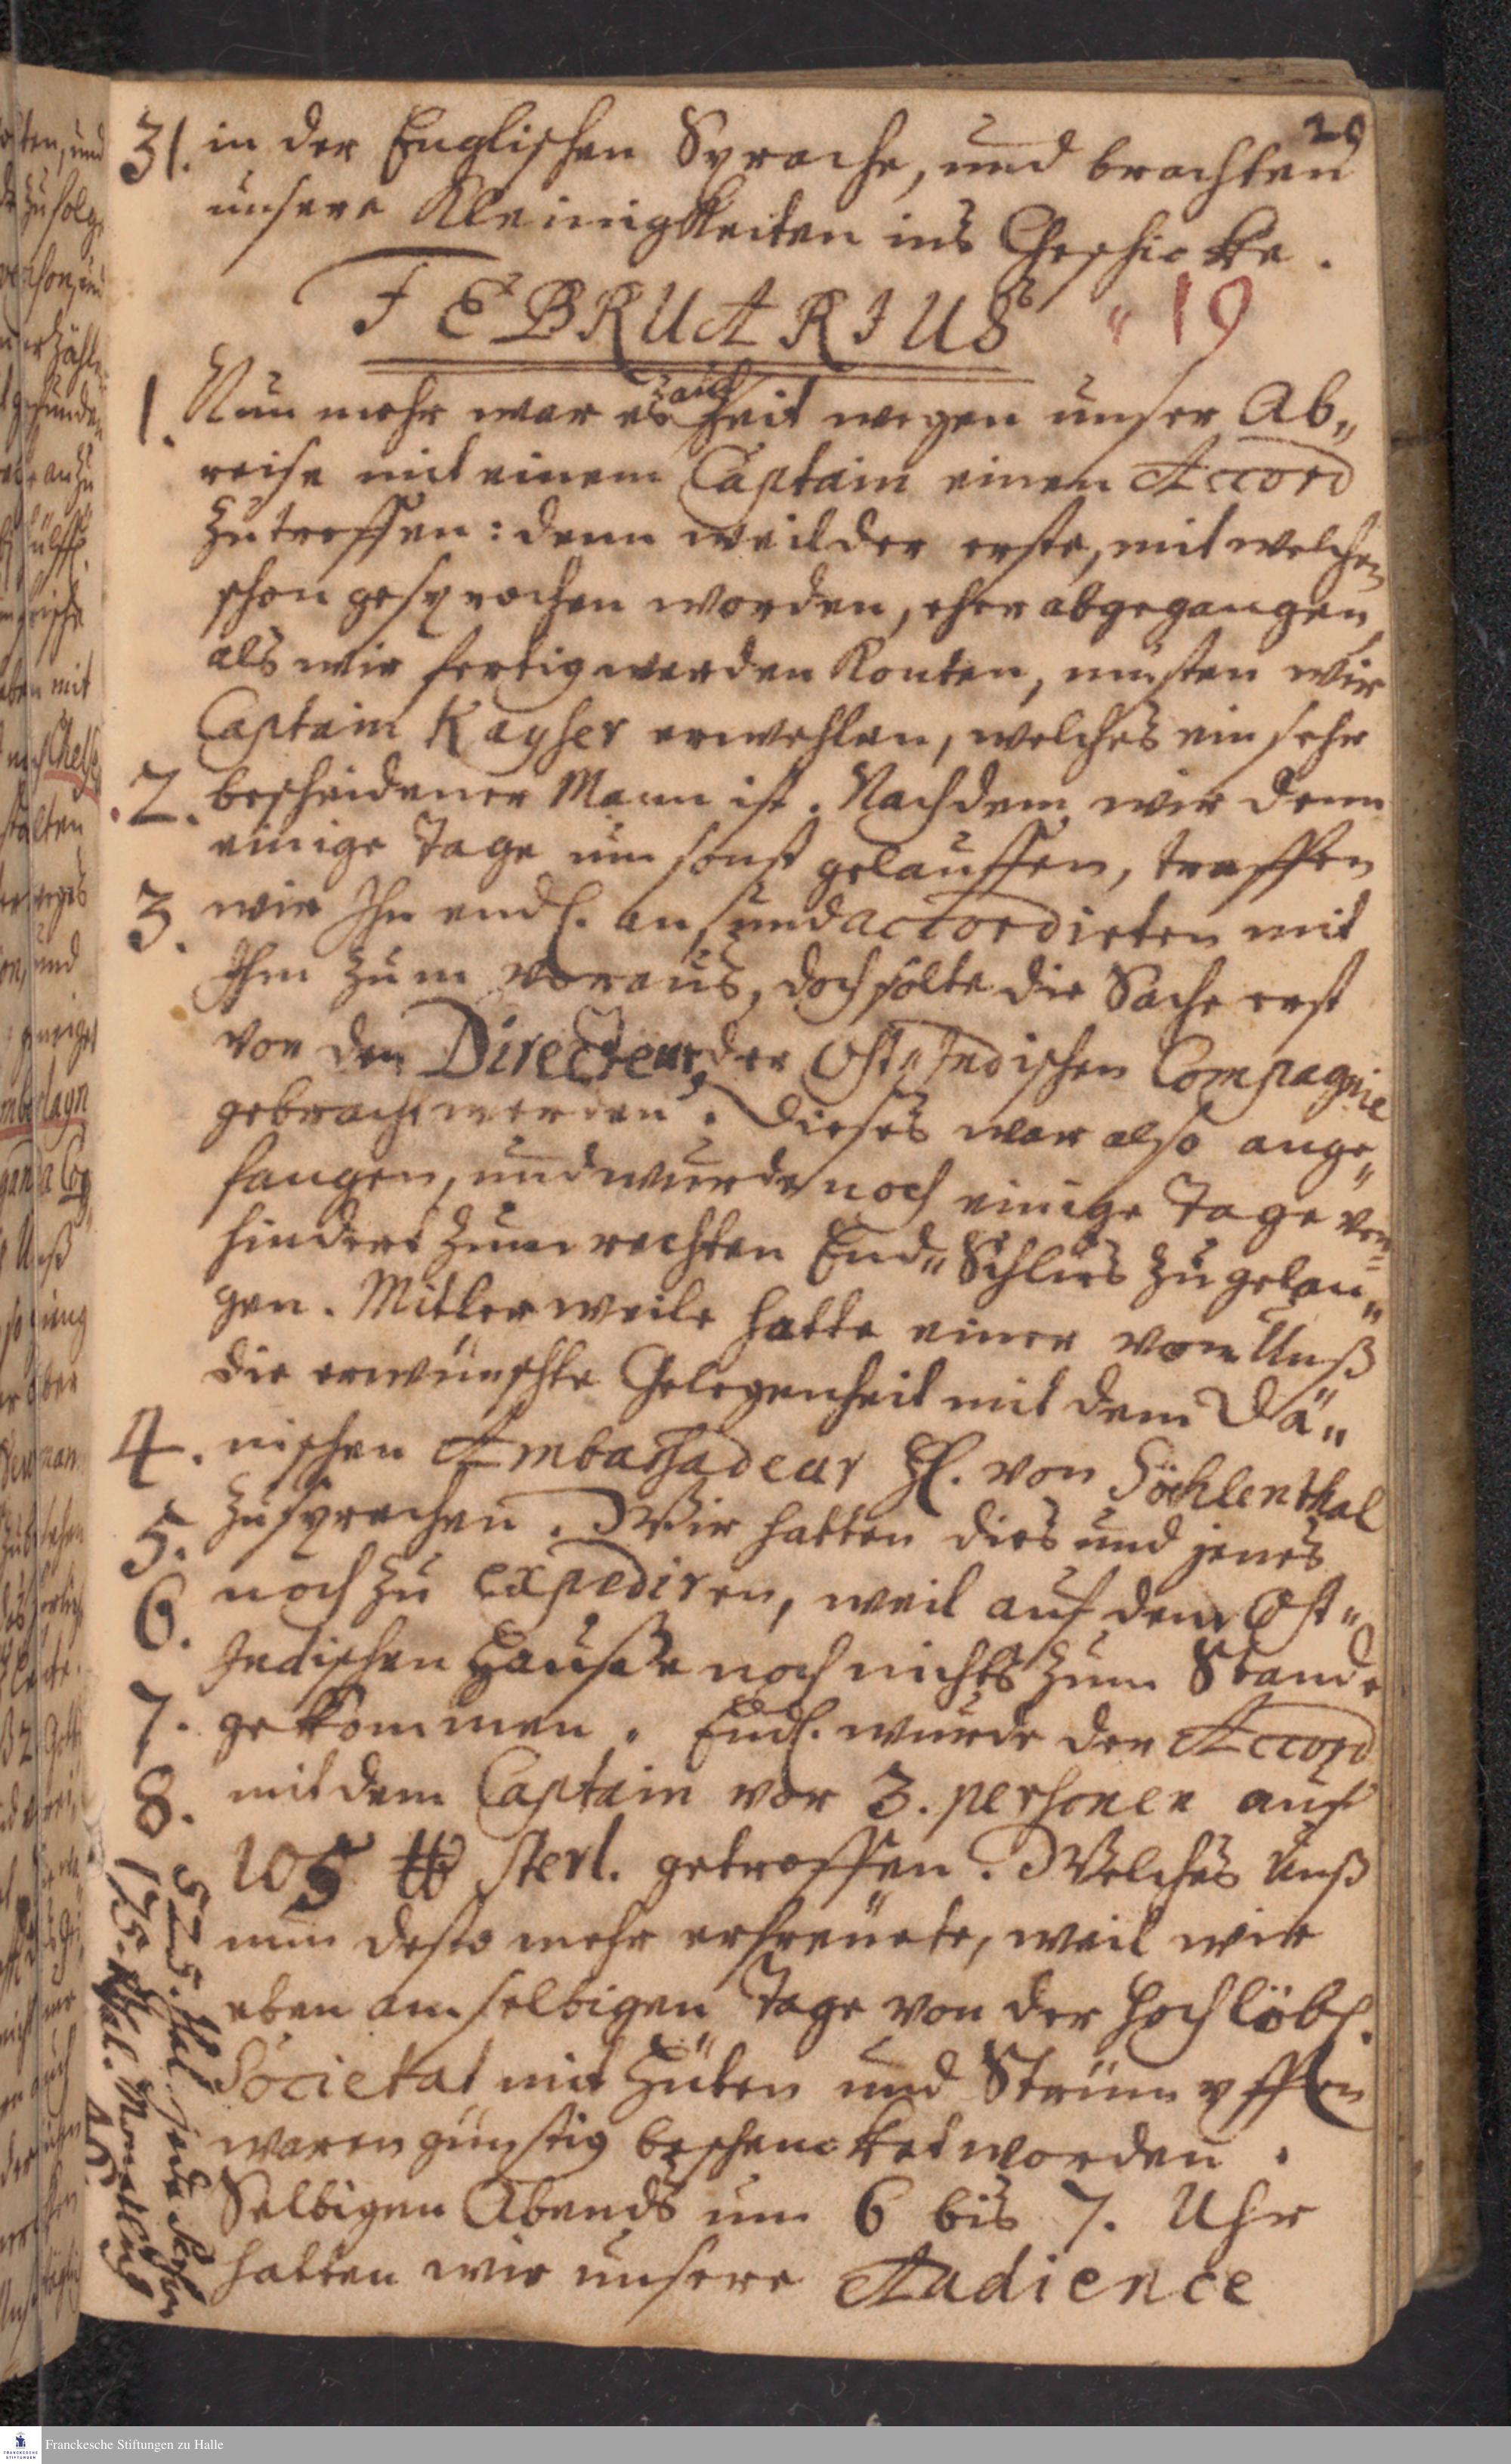 29
31. in der Englischen Sprache, und brachten
unsere Kleinigkeiten ins Geschicke.
FEBRUARIUS " 19
1. Nun mehr war es auch Zeit wegen unser Ab„
reise mit einem Captain einen Accord
zutreffen: denn weil der erste, mit welchen
schon gesprochen worden, eher abgegangen,
als wir fertig werden konten, müsten wir
Captain Kayser erwehlen, welches ein sehr
2. bescheidener Mann ist. Nachdem wir denn
einige Tage um sonst gelauffen, traffen
3. wir Ihn endl. an, und accordirten mit
Ihm zum voraus, doch solte die Sache erst
vor den Directeur der Ost„Indischen Compagnie
gebracht werden. Dieses war also ange„
fangen, und wurde noch einige Tage ver=
hindert zum rechten End„Schlus zu gelan„
gen. Mitlerweile hatte einer von Unß
die erwünschte Gelegenheit mit dem Dä„
4. nischen Ambassadeur H. von Söehlenthal
5. zusprechen. Wir hatten dies und jenes
6. noch zu expediren, weil auf dem Ost„
Indischen Hausse noch nichts zum Stande
7. gekommen. Endl. wurde der Accord
8. mit dem Captain vor 3. personen auf
105 ℔ sterl. getroffen. Welches Unß
nun desto mehr erfreüete, weil wir
eben am selbigen Tage von der Hochlöbl.
Societat mit Hüten und Strümpffen
waren günstig beschencket worden.
Selbigen Abends um 6 bis 7. Uhr
hatten wir unsere Audience
jede Person
175. Monatlich
Franckesche Stiftungen zu Halle